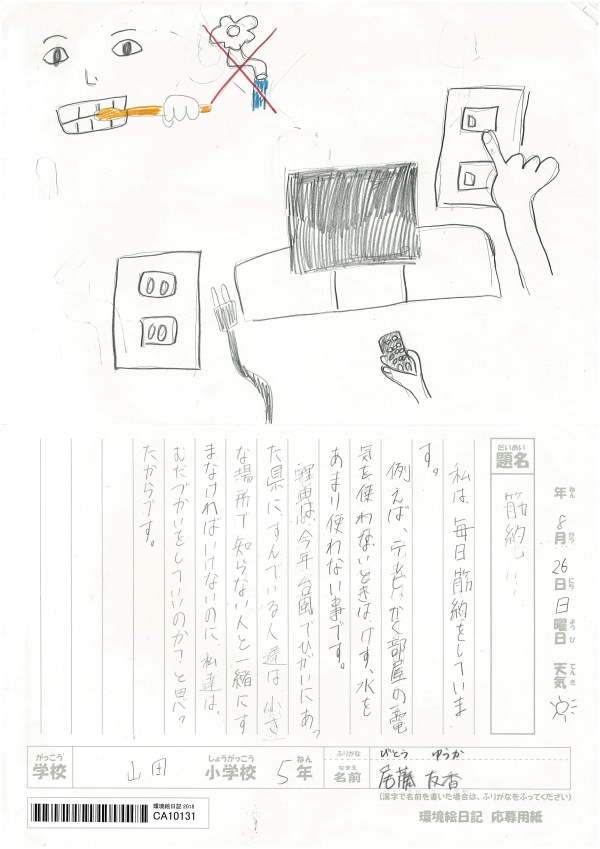 年8月26日日曜日 天気
ねん がつ にち ようび てんき
だいめい
題名 筋納
私は、毎日筋納をしていま
す。
例えば、テレビ、かく部屋の電
気を使わないときは、けす、水を
あまり使わない事です。
理由は、今年台風でひがいにあっ
た県に、すんでいる人達は小さ
な場所で知らない人と一緒にす
まなければいけないのに、私達は、
むだづかいをしていいのか?と思っ
たからです。
がっこう しょうがっこう ねん ふりがな びとう ゆうか
学校 山田 小学校 5年 なまえ 名前 尾藤 友香
(漢字で名前を書いた場合は、ふりがなをふってください)
環境絵日記 2018
CA10131
環境絵日記 応募用紙